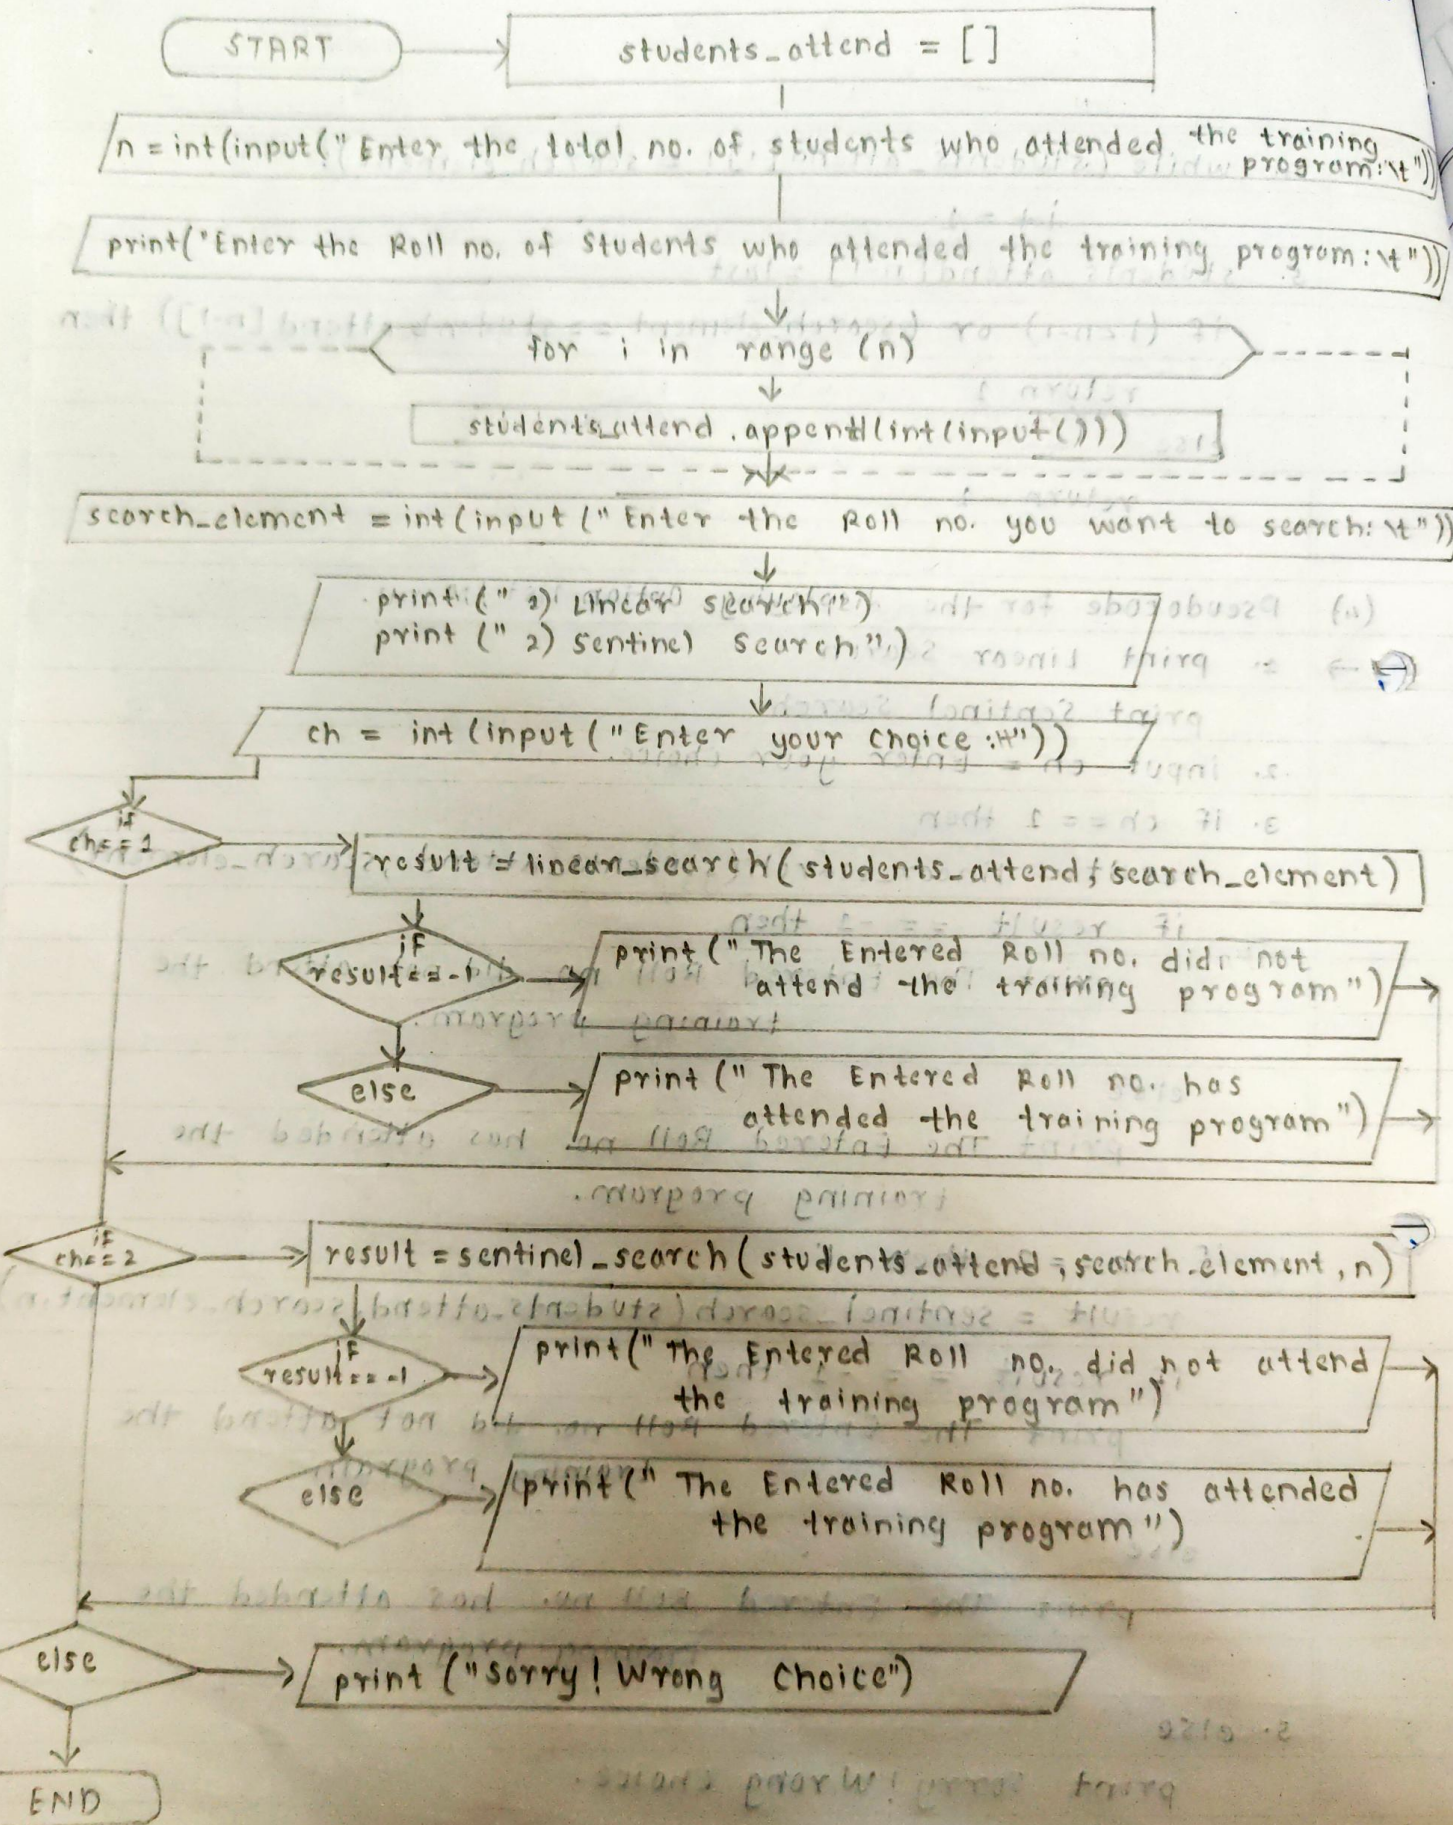 START
students_attend = []
n = int(input("Enter the total no. of students who attended the training
program:\t"))
print("Enter the Roll no. of Students who attended the training program:\t"))
for i in range (n)
students_attend.append(int(input()))
search_element = int(input("Enter the Roll no. you want to search:\t"))
print (" 1) Linear Search")
print (" 2) Sentinel Search")
ch = int(input("Enter your choice:\t"))
if
ch==1
result = linear_search(students_attend, search_element)
if
result==-1
print("The Entered Roll no. did not
attend the training program")
else
print("The Entered Roll no. has
attended the training program")
if
ch==2
result = sentinel_search(students_attend, search_element, n)
if
result==-1
print("The Entered Roll no. did not attend
the training program")
else
print("The Entered Roll no. has attended
the training program")
else
print ("Sorry! Wrong Choice")
END